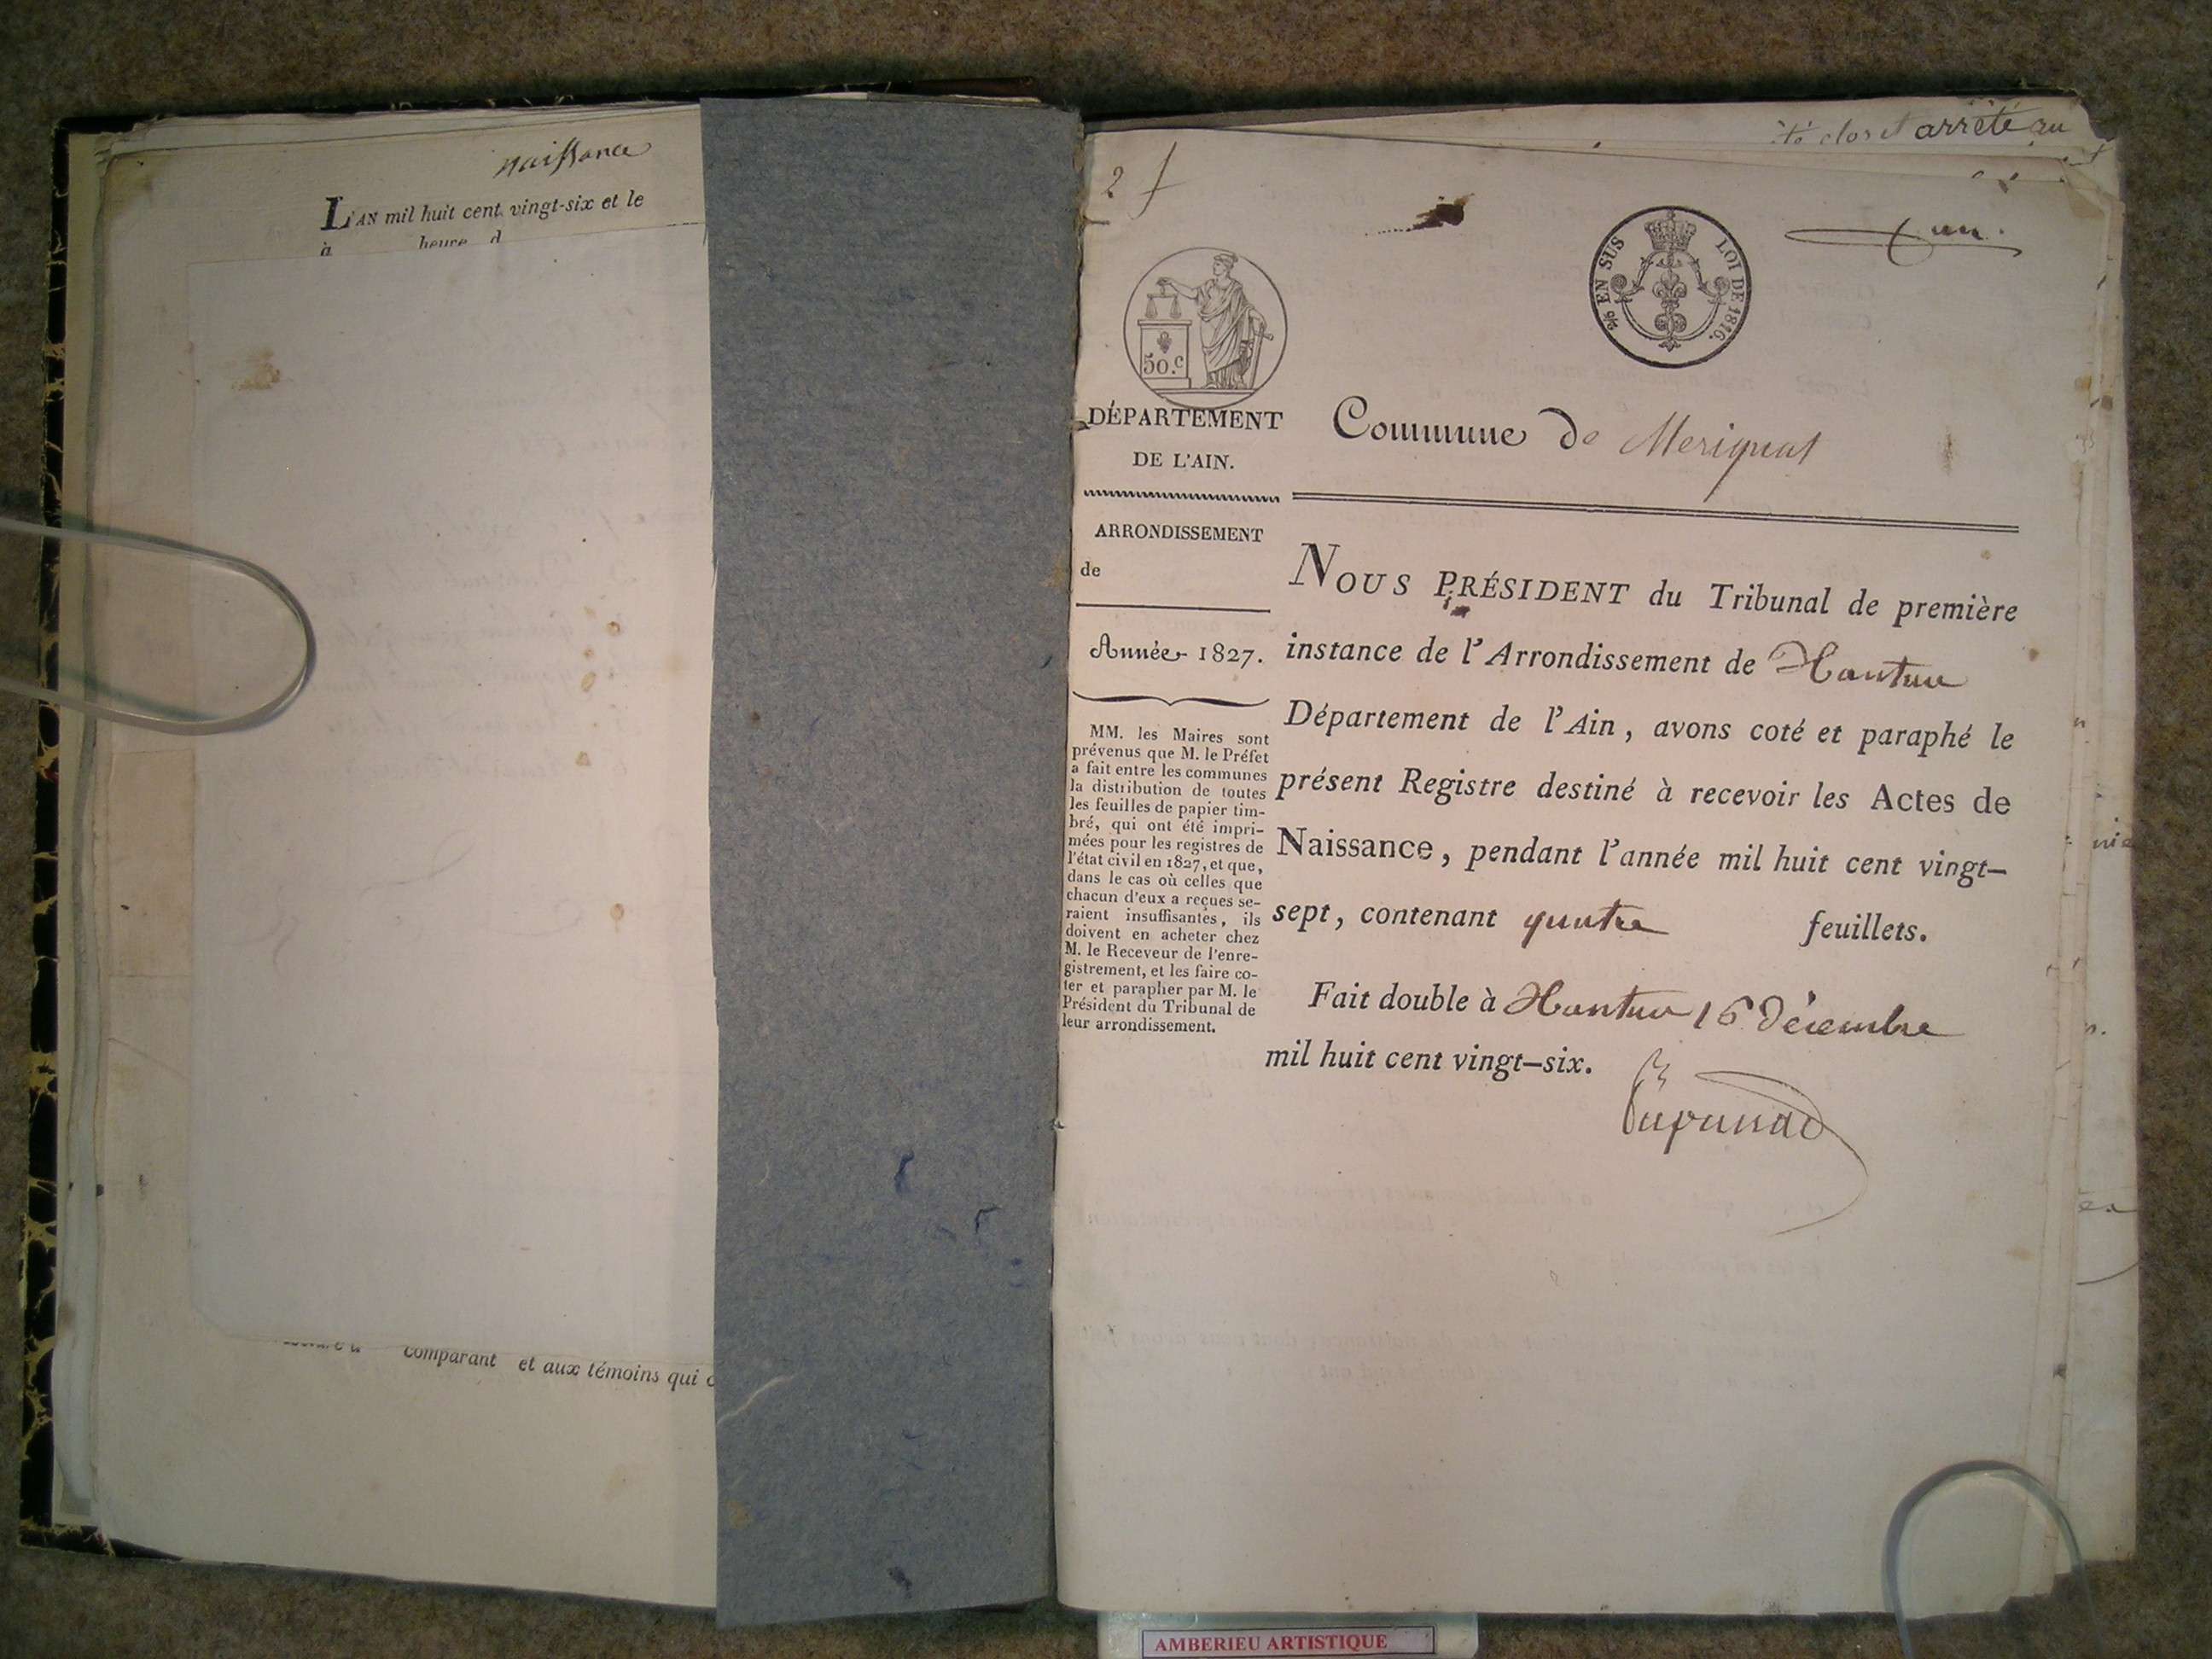 naissance
L'AN mil huit cent vingt-six et le
à heure d
comparant et aux témoins qui
clos et arrêté au
2
un.
50.c
EN SUS LOI DE 1816.
DÉPARTEMENT
DE L'AIN.
Commune de Merignat
ARRONDISSEMENT
de
Année 1827.
MM. les Maires sont
prévenus que M. le Préfet
a fait entre les communes
la distribution de toutes
les feuilles de papier tim-
bré, qui ont été impri-
mées pour les registres de
l'état civil en 1827, et que,
dans le cas où celles que
chacun d'eux a reçues se-
raient insuffisantes, ils
doivent en acheter chez
M. le Receveur de l'enre-
gistrement, et les faire co-
ter et parapher par M. le
Président du Tribunal de
leur arrondissement.
NOUS PRÉSIDENT du Tribunal de première
instance de l'Arrondissement de Nantua
Département de l'Ain, avons coté et paraphé le
présent Registre destiné à recevoir les Actes de
Naissance, pendant l'année mil huit cent vingt-
sept, contenant quatre feuillets.
Fait double à Nantua 16 Décembre
mil huit cent vingt-six.
AMBERIEU ARTISTIQUE